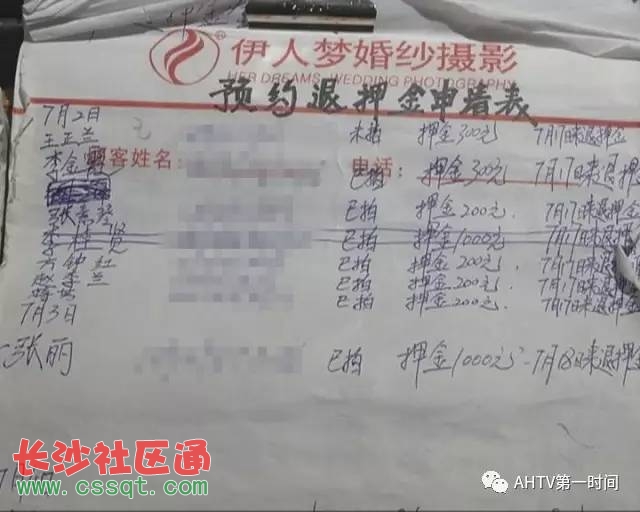 伊人梦婚纱摄影
HER DREAMS WEDDING PHOTOGRAPHY
预约退押金申请表
7月2日
王正兰 未拍 押金300元 7月17日来退押金
李金霞 已拍 押金300元 7月17日来退押
顾客姓名: 电话:
已拍 押金200元. 7月17日来退押金
李桂贤 已拍 押金1000元 7月17日来退押
已拍 押金200元. 7月17日来退押
已拍 押金200元. 7月17日来退押金
已拍 押金200元. 7月17日来退押金
7月3日
张丽 已拍 押金1000元 7月18日来退押金
长沙社区通
www.cssqt.com
AHTV第一时间